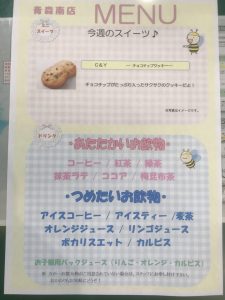 青森南店
MENU
スイーツ
今週のスイーツ♪
C&Y ― チョコチップクッキー ―
チョコチップがたっぷり入ったサクサクのクッキーだよ!
ドリンク
・あたたかいお飲物・
コーヒー / 紅茶 / 緑茶
抹茶ラテ / ココア / 梅昆布茶
・つめたいお飲物・
アイスコーヒー / アイスティー / 麦茶
オレンジジュース / リンゴジュース
ポカリスエット / カルピス
お子様用パックジュース(りんご・オレンジ・カルピス)